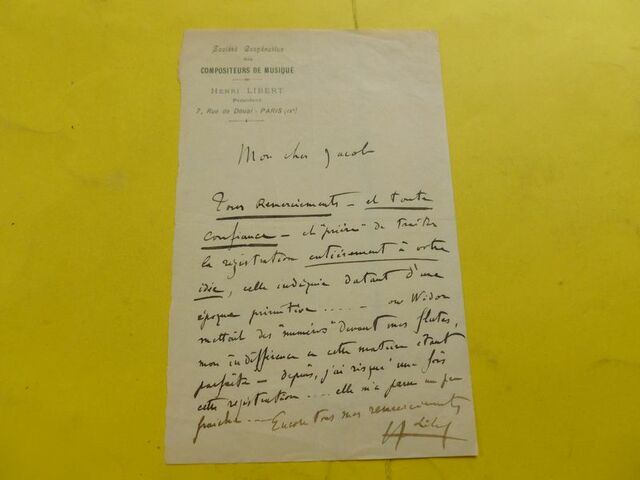 Société Coopérative
des
COMPOSITEURS DE MUSIQUE
HENRI LIBERT
Président
7, Rue de Douai - PARIS (IXe)
Mon cher Jacob
Tous Remerciements - et toute
confiance - et "prière" de traiter
la registration entièrement à votre
idée, celle indiquée datant d'une
époque primitive ..... où Widor
mettait des "numéros" devant mes flûtes,
mon indifférence en cette matière étant
parfaite - depuis, j'ai risqué une fois
cette registration .... elle m'a paru un peu
fraîche ... Encore tous mes remerciements
H Libert